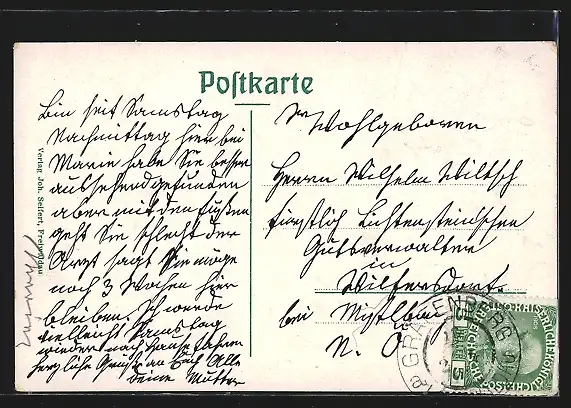 Postkarte
Bin seit Samstag
Nachmittag hier bei
Marie habe Sie besser
aussehend gefunden
aber mit den Füßen
geht Sie schlecht der
Arzt sagt Sie möge
noch 3 Wochen hier
bleiben. Ich werde
vielleicht Samstag
wieder nach Hause fahren
herzliche Grüße an Euch Alle
Deine Mutter
Verlag Joh. Seifert, Freiwaldau
Sr Wohlgeboren
Herrn Wilhelm Wiltsch
fürstlich Lichtensteinischen
Gutsverwalter
in
Wilfersdorf
bei Mistlbach
N. Ö.
GRÄFENBERG
5 HELLER 5